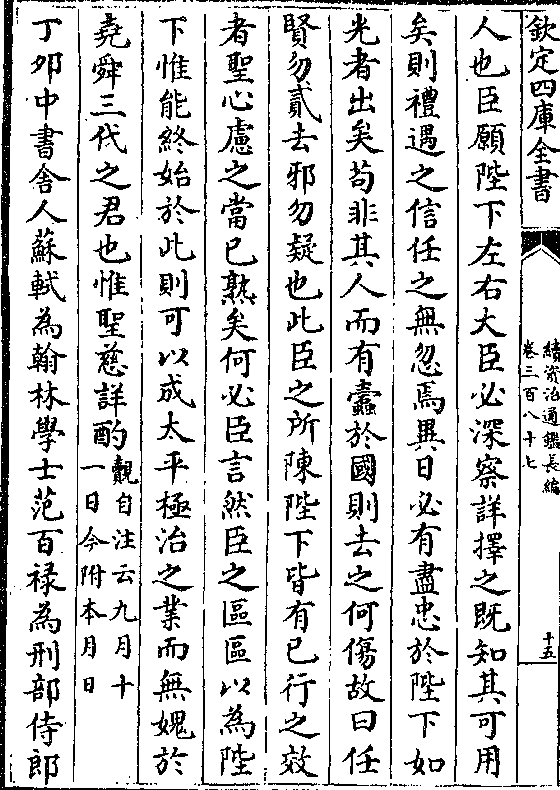 欽定四庫全書
續資治通鑑長編
卷三百八十七
十五
人也臣願陛下左右大臣必深察詳擇之既知其可用
矣則禮遇之信任之無忽焉異日必有盡忠於陛下如
光者出矣苟非其人而有蠹於國則去之何傷故曰任
賢勿貳去邪勿疑也此臣之所陳陛下皆有已行之效
者聖心慮之當已熟矣何必臣言然臣之區區以為陛
下惟能終始於此則可以成太平極治之業而無媿於
堯舜三代之君也惟聖慈詳酌
覿自注云九月十
一日今附本月日
丁夘中書舎人蘇軾為翰林學士范百禄為刑部侍郎